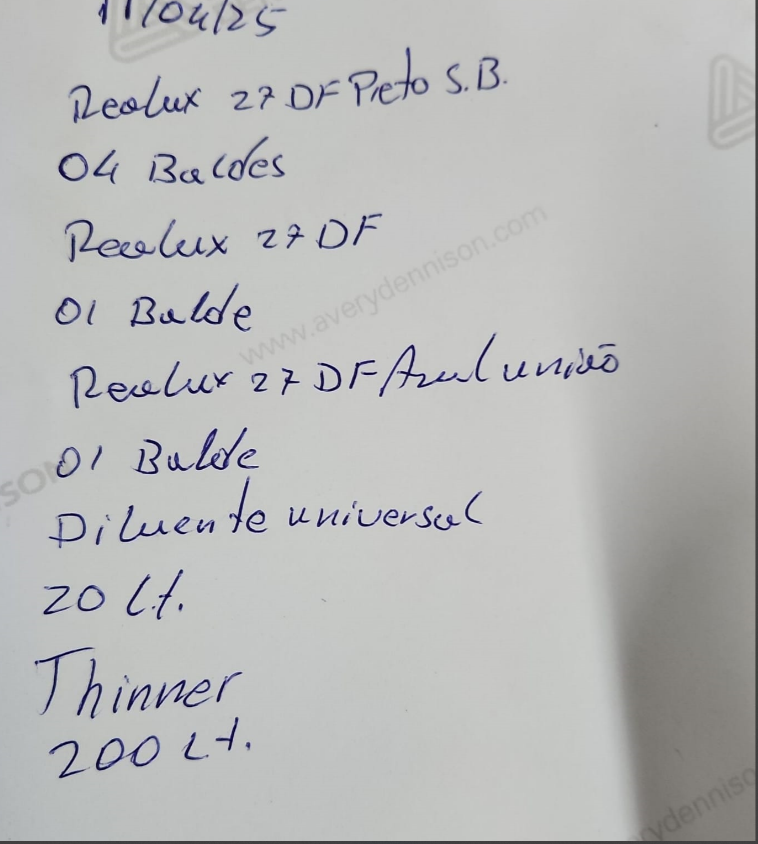 11/04/25
Realux 27 DF Preto S.B.
04 Baldes
Realux 27 DF
www.averydennison.com
01 Balde
Realux 27 DF Azul união
01 Balde
Diluente universal
20 Lt.
Thinner
200 Lt.